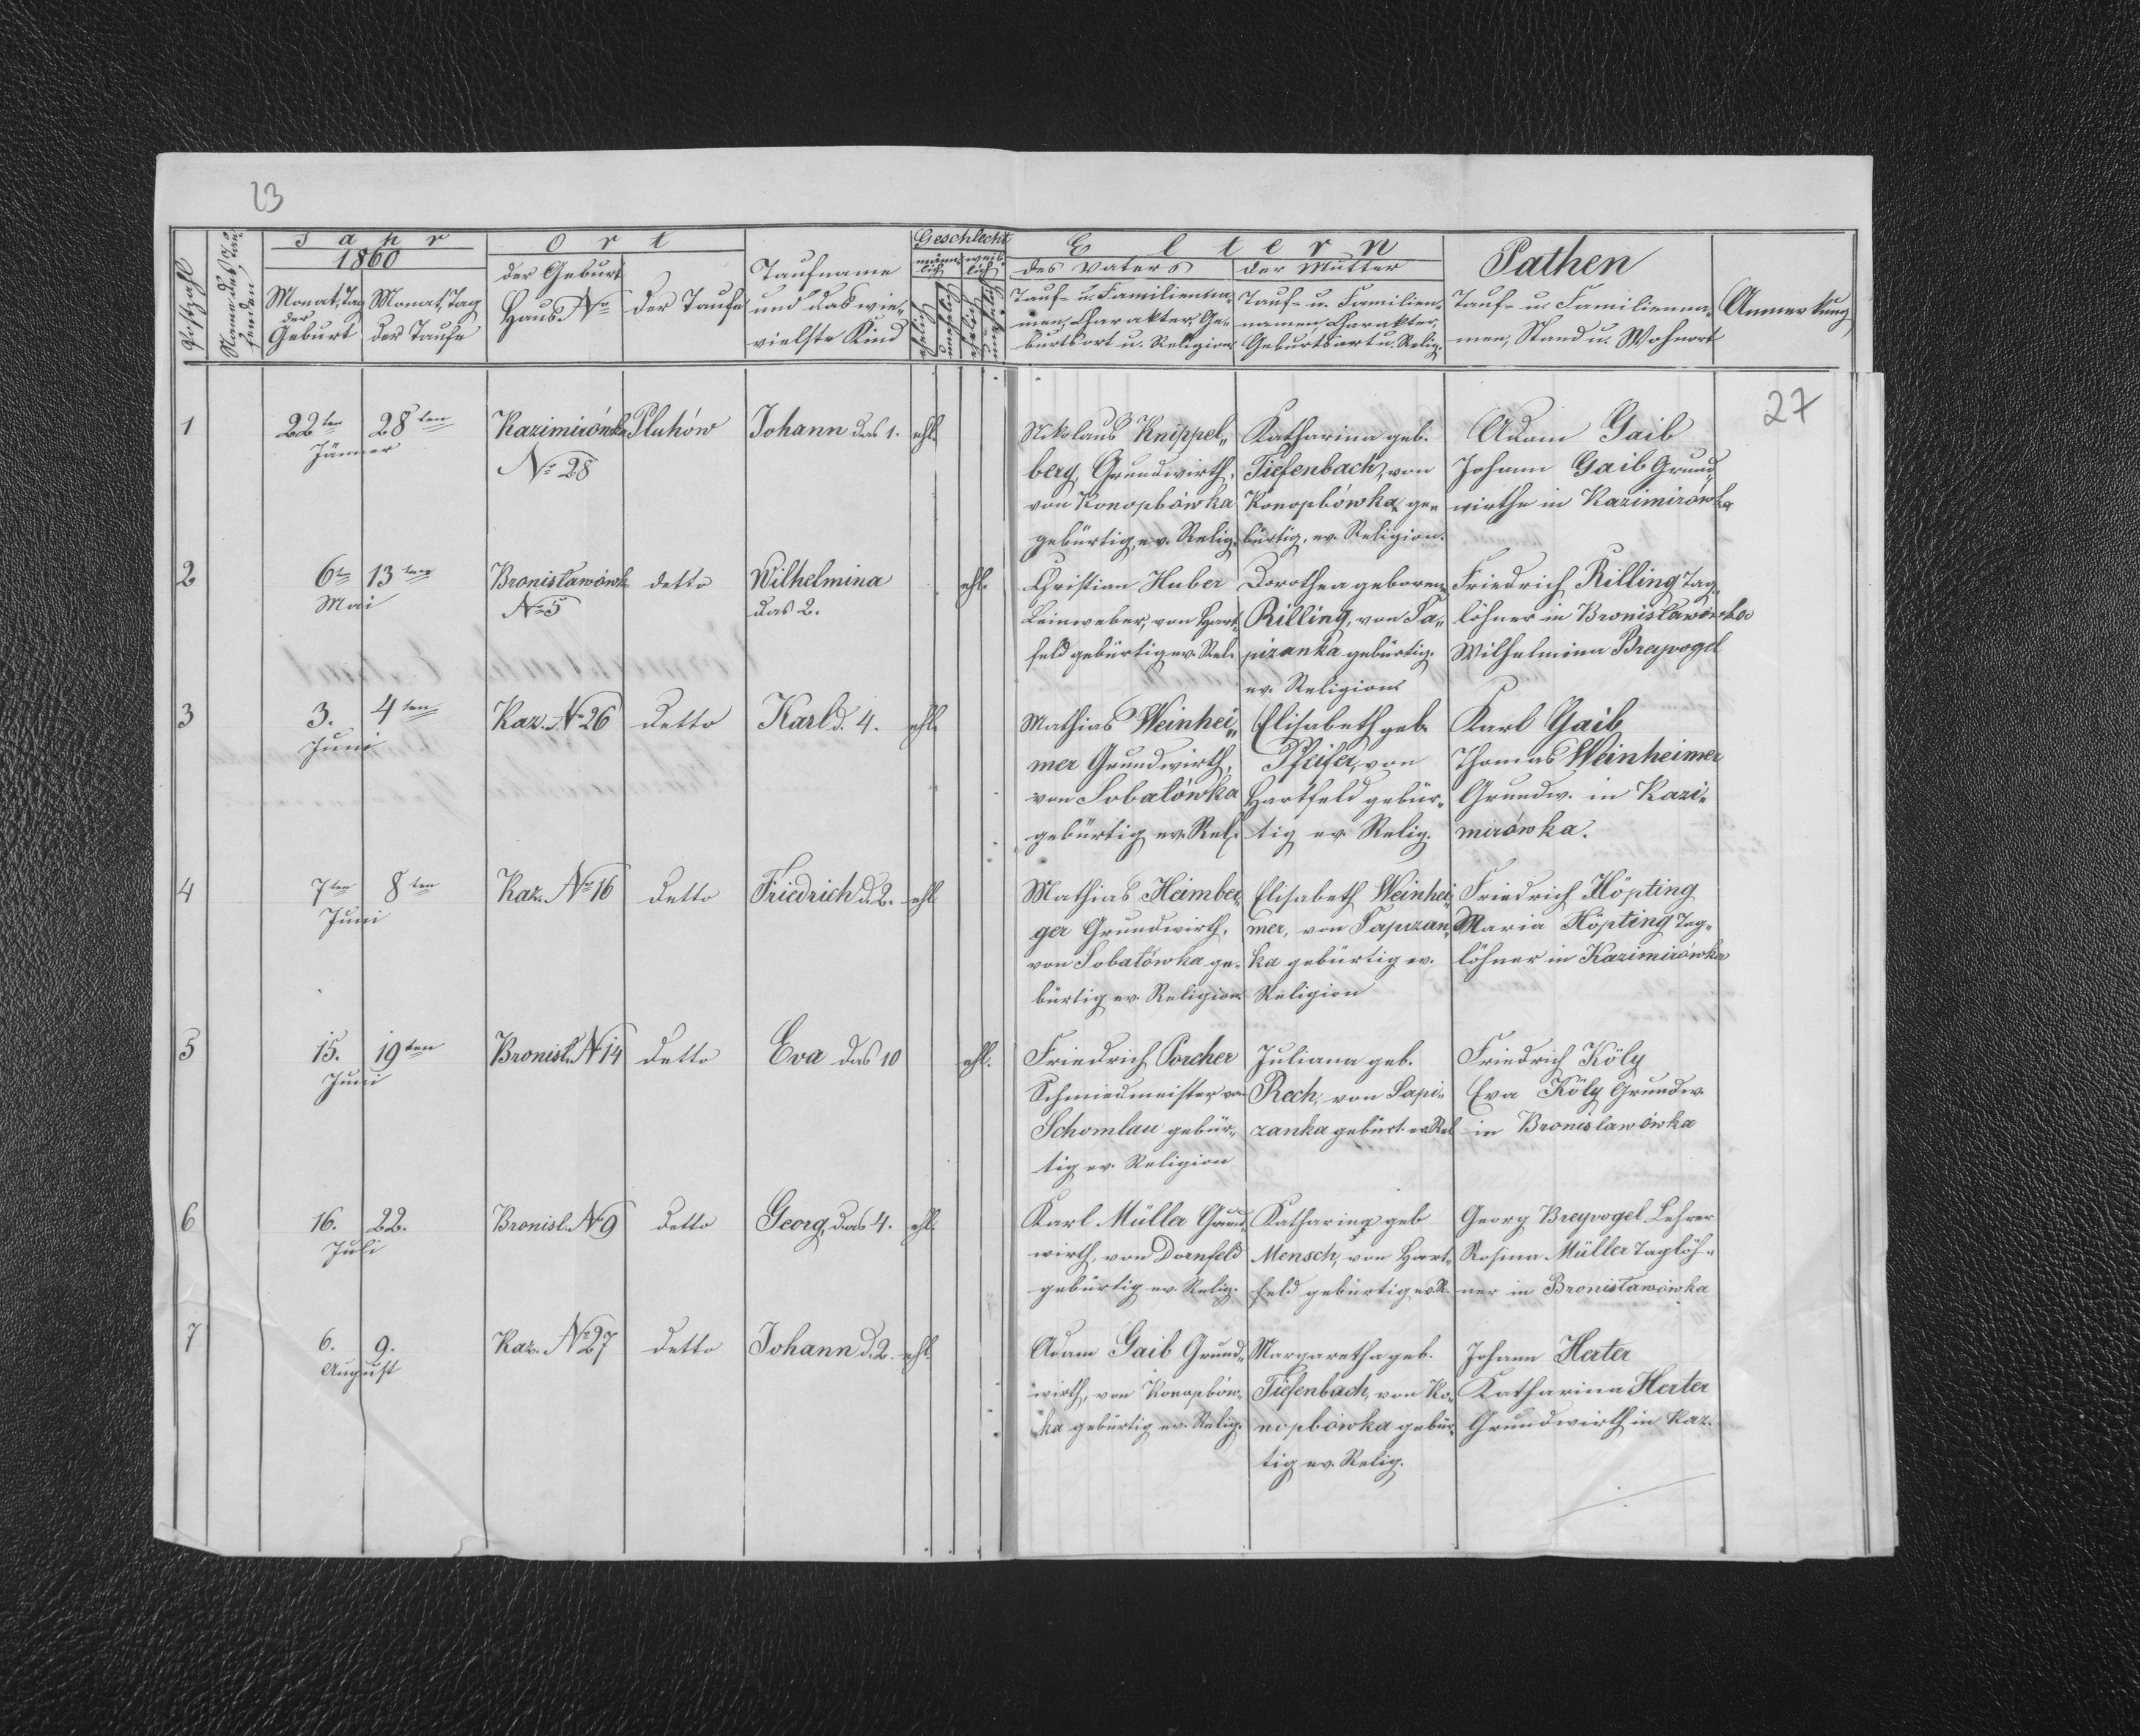 23
27
Postzahl
Name des Taufenden
Jahr
1860
Monat, Tag der Geburt
Monat, Tag der Taufe
Ort
der Geburt Haus No
der Taufe
Taufname und das wievielste Kind
Geschlecht
männlich
weiblich
ehelich
unehelich
ehelich
unehelich
Eltern
des Vaters
Tauf- u. Familienna-
men, Charakter, Ge-
burtsort u. Religion
der Mutter
Tauf- u. Familien-
namen, Charakter,
Geburtsort u. Relig.
Pathen
Tauf- u. Familienna-
men, Stand u. Wohnort
Anmerkung
1
22ten
28ten
Jänner
Kazimirówka
No 28
Pluhów
Johann das 1.
ehl.
Nikolaus Knippel„
berg, Grundwirth,
von Konopkówka
gebürtig, ev. Relig.
Katharina geb.
Tiefenbach, von
Konopkówka ge„
bürtig, ev. Religion.
Adam Gaib
Johann Gaib Grund„
wirthe in Kazimirówka
2
6ten
13ten
Mai
Bronisławówk
No 5
detto
Wilhelmina
das 2.
ehl.
Christian Huber
Leinweber, von Hart„
feld gebürtig ev. Rel.
Dorothea geboren
Rilling, von Sa„
pizanka gebürtig.
ev. Religion.
Friedrich Rilling Tag„
löhner in Bronisławówka
Wilhelmina Breyvogel
3
3.
4ten
Juni
Kaz. No 26
detto
Karl d. 4.
ehl.
Mathias Weinhei„
mer Grundwirth,
von Sobalówka
gebürtig ev. Rel.
Elisabeth geb.
Pfeifer, von
Hartfeld gebür„
tig ev. Relig.
Karl Gaib
Thomas Weinheimer
Grundw. in Kazi„
mirówka.
4
7ten
8ten
Juni
Kaz. No 16
detto
Friedrich d. 2.
ehl.
Mathias Heimber„
ger Grundwirth,
von Sobałówka ge„
bürtig ev. Religion
Elisabeth Weinhei„
mer, von Sapizan„
ka gebürtig ev.
Religion
Friedrich Höpting
Maria Höpting Tag„
löhner in Kazimirówka
5
15.
19ten
Juni
Bronisł. No 14
detto
Eva das 10
ehl.
Friedrich Porcher
Schmiedmeister, von
Schomlau gebür„
tig ev. Religion
Juliana geb.
Rech, von Sapi„
zanka gebürt. ev. Rel
Friedrich Köly
Eva Köly Grundw.
in Bronislawówka
6
16.
22.
Juli
Bronisl. No 9
detto
Georg, das 4.
ehl.
Karl Müller Grund„
wirth, von Dornfeld
gebürtig ev. Relig.
Katharina geb
Mensch, von Hart„
feld gebürtig ev. R.
Georg Breyvogel Lehrer
Rosina Müller Taglöh„
ner in Bronisławówka
7
6.
9.
August
Kaz. No 27
detto
Johann d. 2.
ehl.
Adam Gaib Grund„
wirth, von Konopków„
ka gebürtig ev. Relig.
Margaretha geb.
Tiefenbach, von Ko„
nopkówka gebür„
tig ev. Relig.
Johann Herter
Katharina Herter
Grundwirth in Kaz.